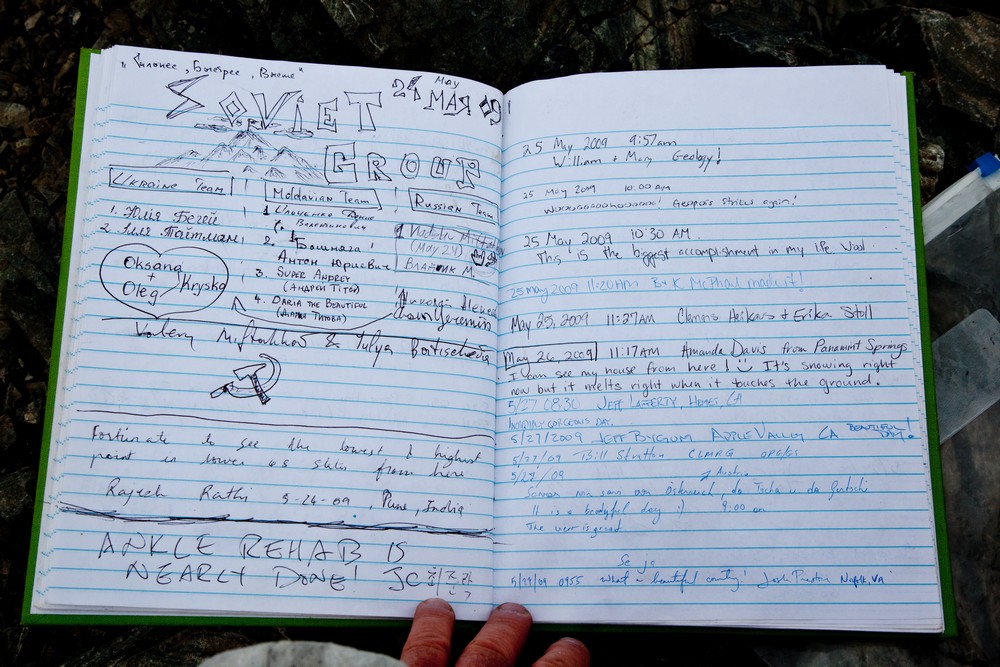 "Сильнее, Быстрее, Выше"
SOVIET
24 May МАЯ 09
GROUP
Ukraine Team
1. Юлія Бегей
2. Ілля Тайтман
Oksana
+
Oleg
Kryska
Moldavian Team
1.
2. Бошняга
Антон Юриевич
3. SUPER ANDREY
(АНДРЕЙ ТИТОВ)
4. DARIA THE BEAUTIFUL
(ДАРИА ТИТОВА)
Russian Team
1
(May 24)
Владик М.
Yeremin
Valery & Yulya
Fortunate to see the lowest & highest
point in lower 48 states from here
Rajesh Rathi 5-24-09, Pune, India
ANKLE REHAB IS
NEARLY DONE! JC
25 May 2009 9:57am
William & Mary Geology!
25 May 2009 10:00 AM
Geopals strikes again!
25 May 2009 10:30 AM
This is the biggest accomplishment in my life Woo!
25 may 2009 11:20AM B+K McPhail made it!
May 25, 2009 11:27AM & Erika Stoll
May 26, 2009 11:17AM Amanda Davis from Panamint Springs
I can see my house from here! It's snowing right
now but it melts right when it touches the ground.
5/27 08:30 JEFF LAFFERTY, HEMET, CA
GORGEOUS DAY.
5/27/2009 JEFF BYGUM APPLE VALLEY CA BEAUTIFUL DAY!
5/27/09 Bill CLMRG
5/28/09
Austria
It is a beautyful day :) 9:00 am
The view is great
5/29/09 0955 What a beautiful country! Josh Preston Norfolk, VA